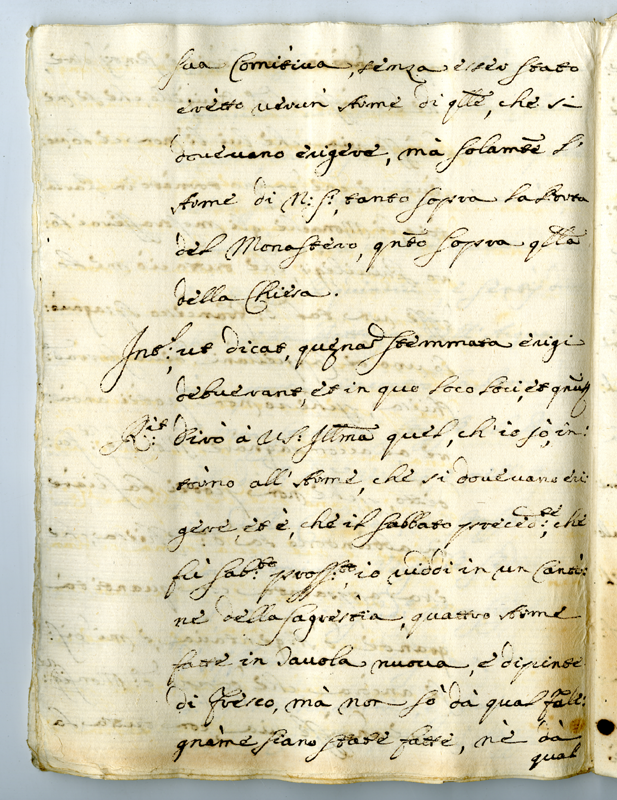 sua Comitiua, senza esser stato
eretto uerun Arme di qlle, che si
doueuano erigere, mà solamte l'
Arme di N: S:, tanto sopra la Porta
del Monastero, qnto sopra qlla
della Chiesa.
Int:, ut dicat, quænã stemmata erigi
debuerant, et in quo loco loci, et
Rit: Dirò à V.S. Illma quel, ch' io sò, in:
torno all' Arme, che si doueuano eri:
gere, et è, che il sabbato preced:te, che
fù sab:to pross:to, io uiddi in un Canti:
ne della sagrestia, quattro Arme
fatte in tauola nuoua, e dipinte
di fresco, mà non sò dà qual fale:
gname siano state fatte, nè dà
qual